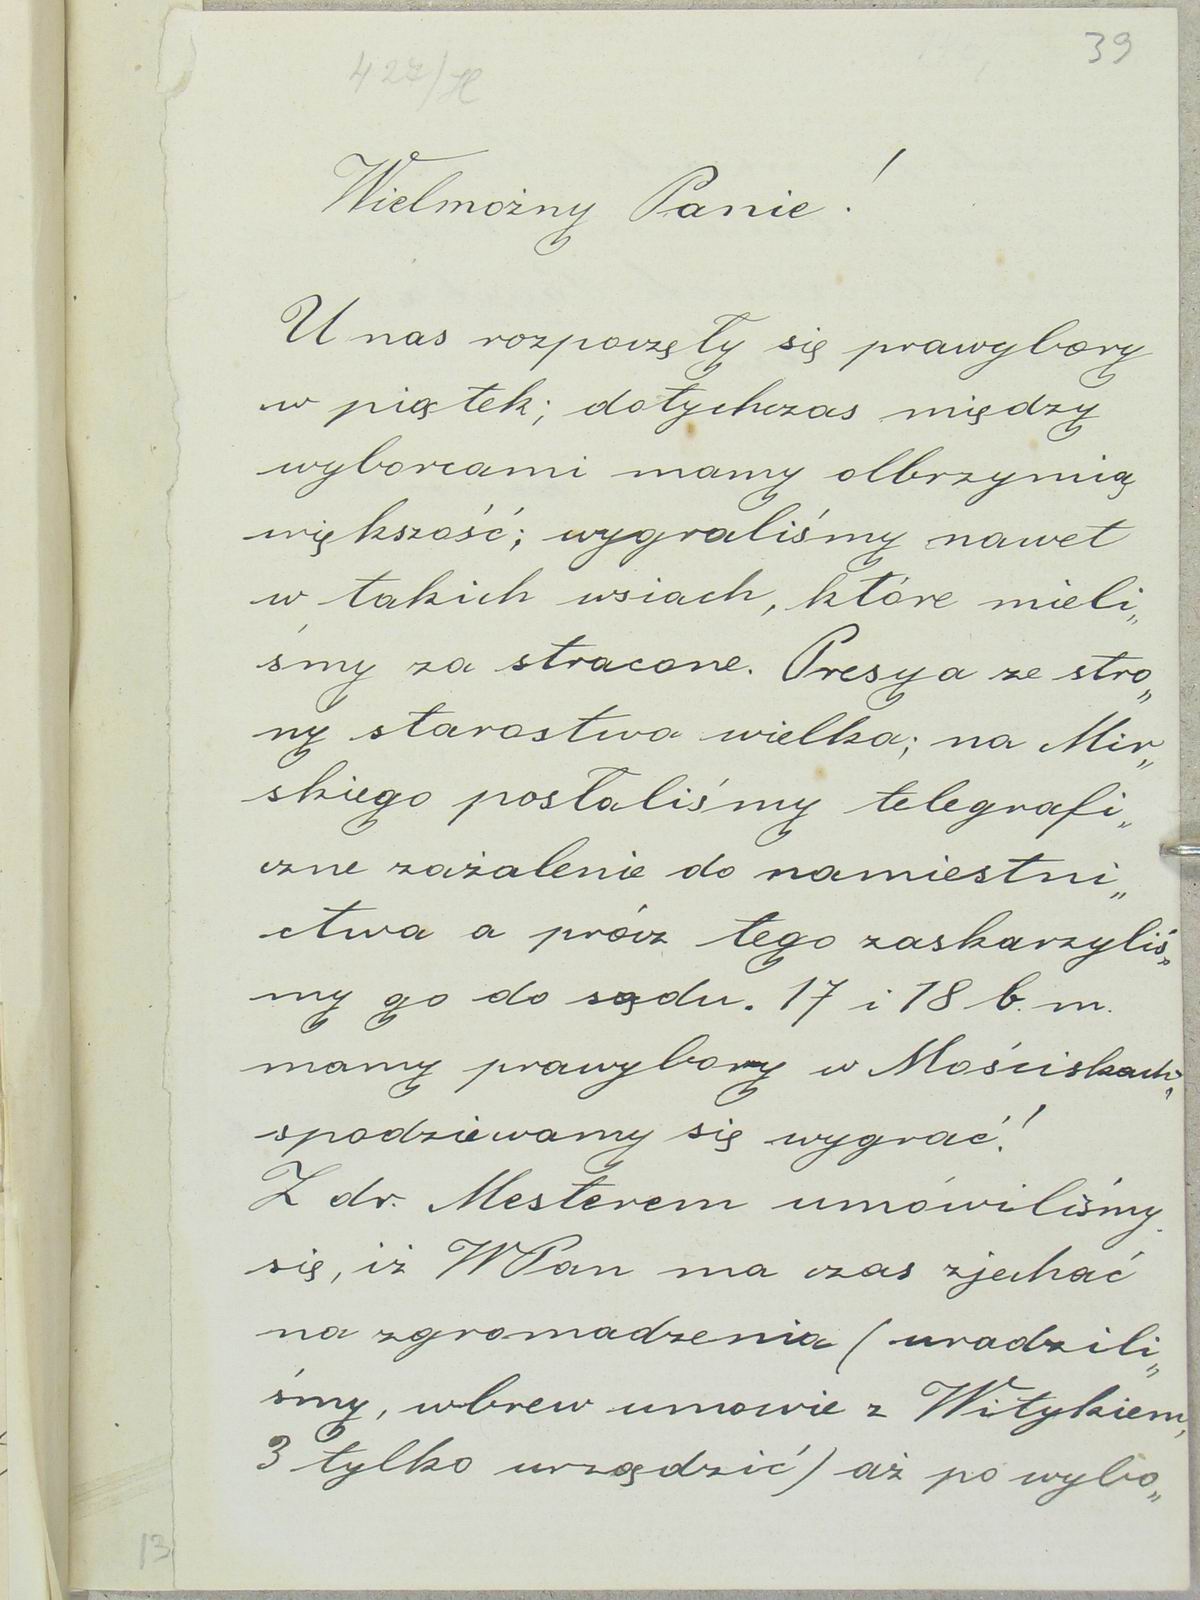 39
427/H
Wielmożny Panie!
U nas rozpoczęły się prawybory
w piątek; dotychczas między
wyborcami mamy olbrzymią
większość; wygraliśmy nawet
w takich wsiach, które mieli„
śmy za stracone. Presya ze stro„
ny starostwa wielka; na Mir„
skiego posłaliśmy telegrafi„
czne zażalenie do namiestni„
ctwa a prócz tego zaskarzyliś„
my go do sądu. 17 i 18 b. m.
mamy prawybory w Mościskach,
spodziewamy się wygrać!
Z dr. Mesterem umówiliśmy
się, iż WPan ma czas zjechać
na zgromadzenia (uradzili„
śmy, wbrew umowie z Witykiem,
3 tylko urządzić) aż po wybo„
13